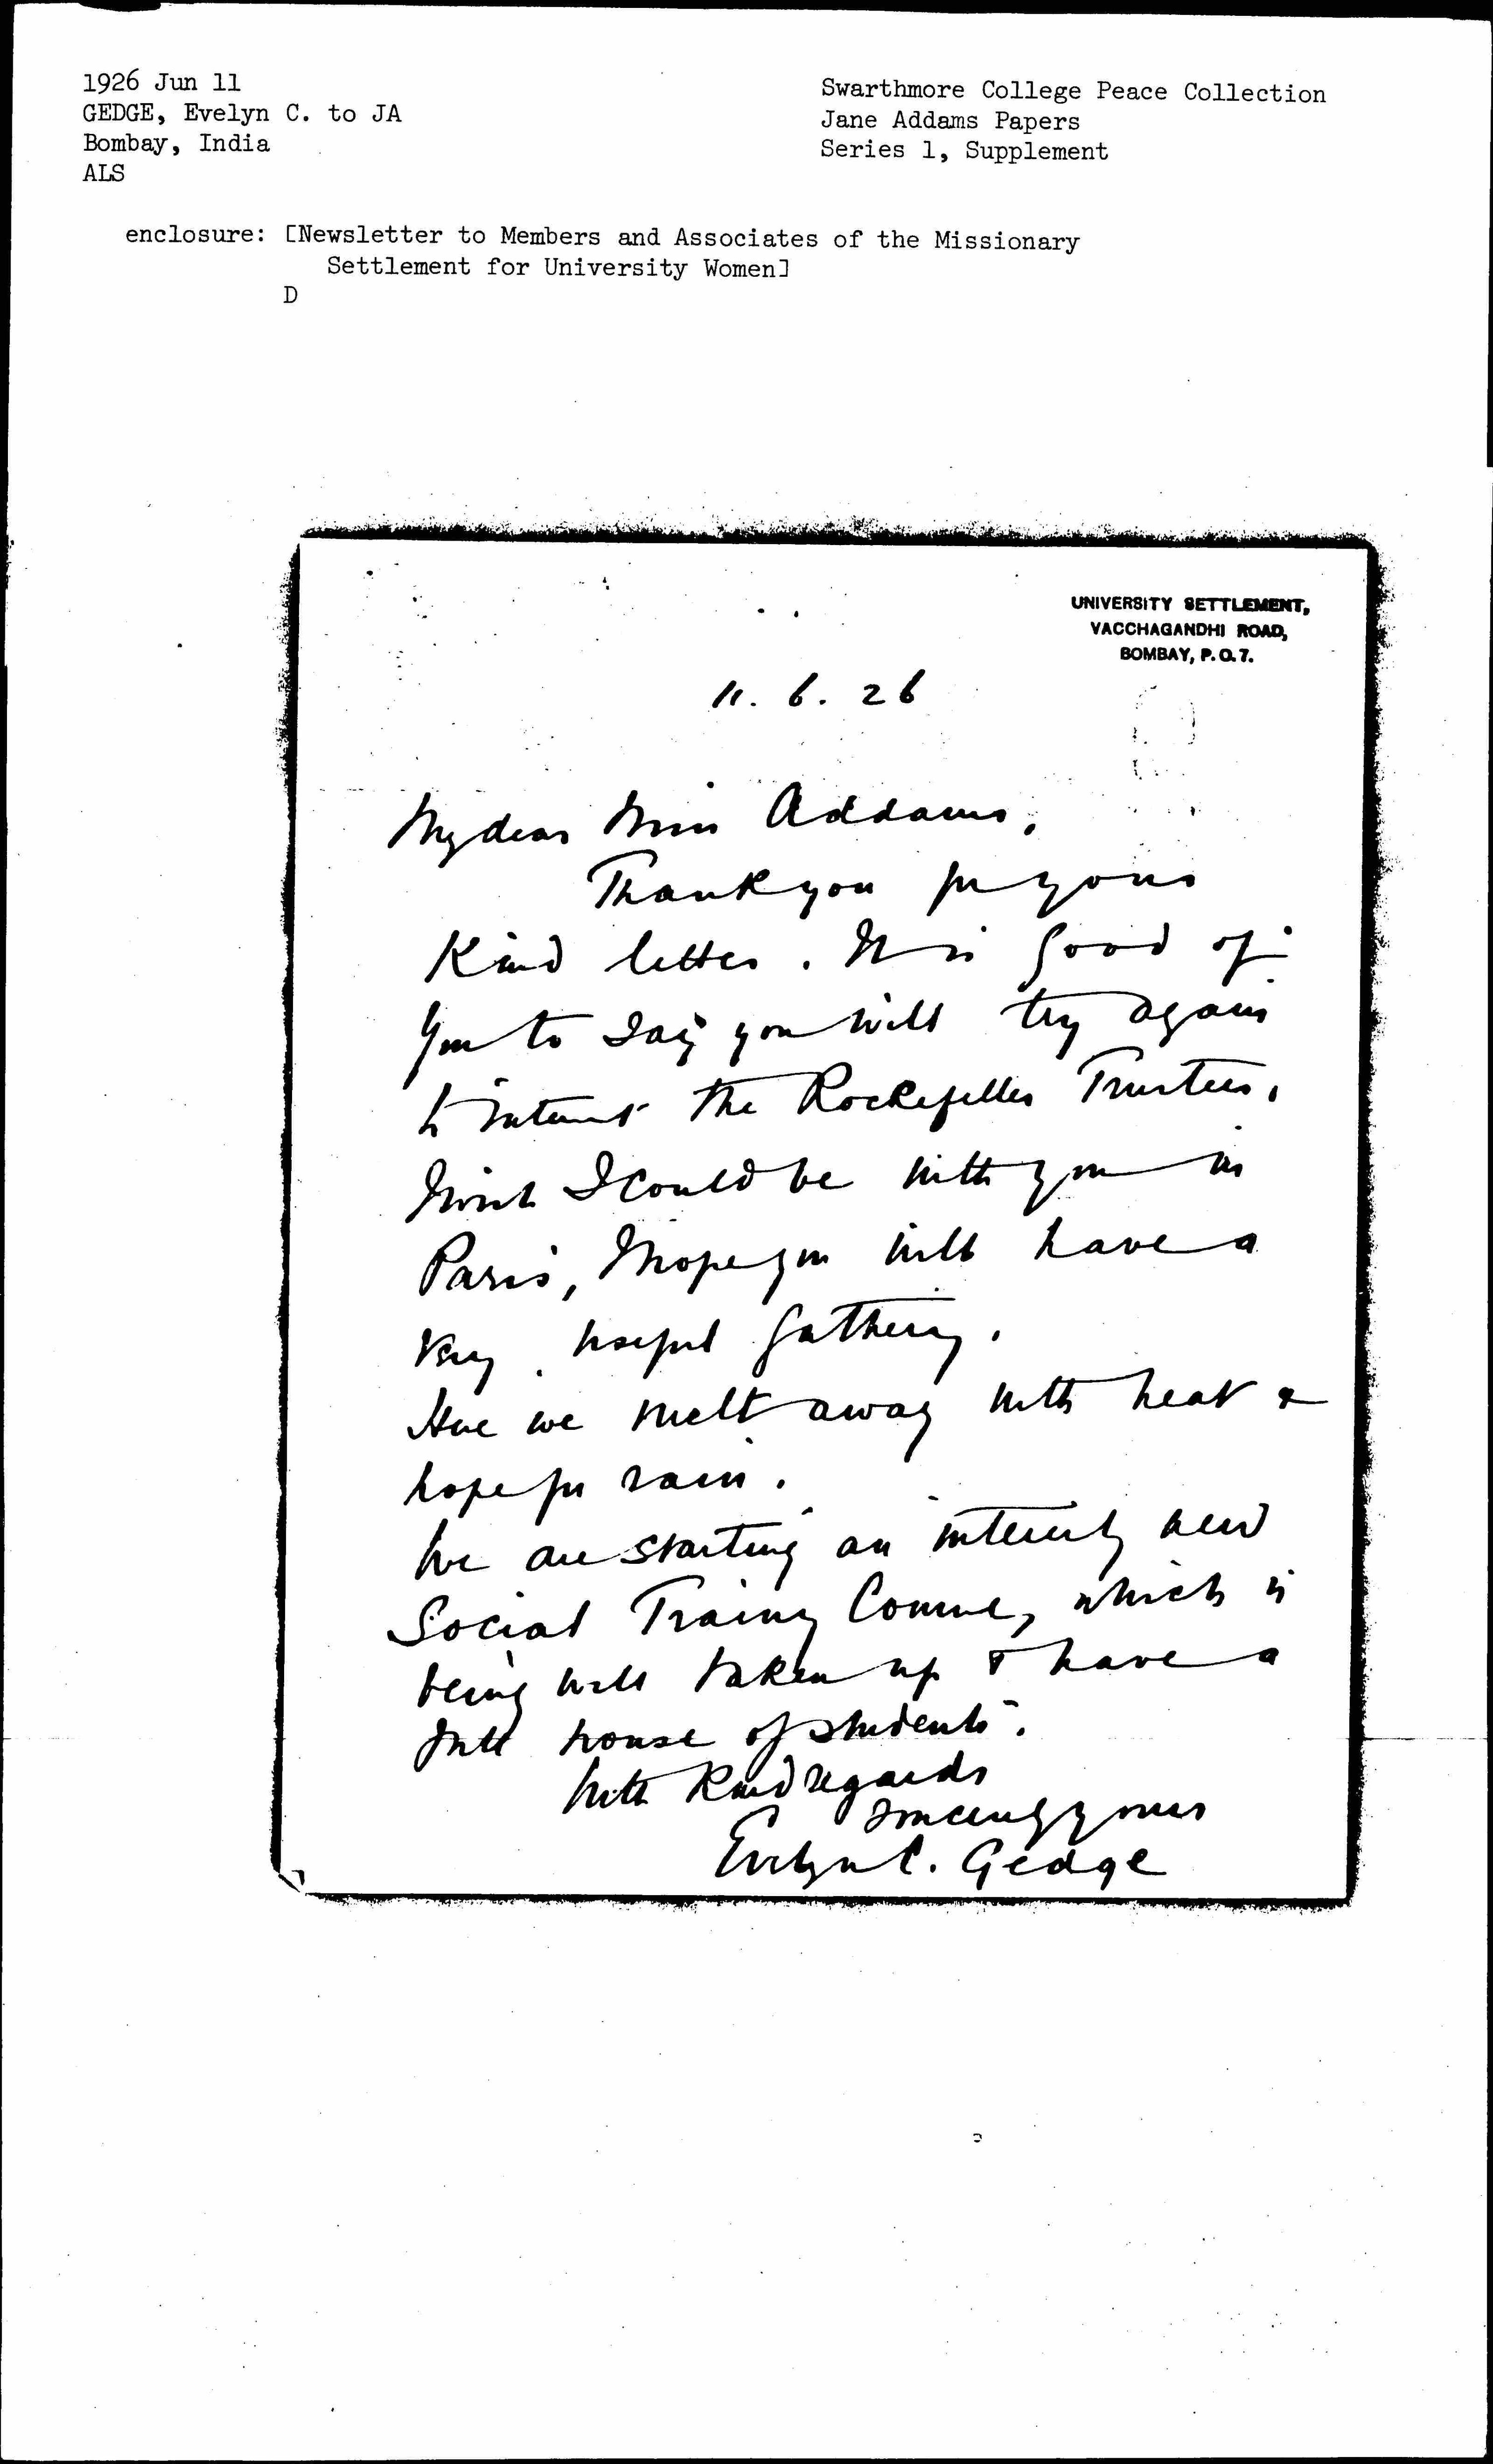 1926 Jun 11
GEDGE, Evelyn C. to JA
Bombay, India
ALS
Swarthmore College Peace Collection
Jane Addams Papers
Series 1, Supplement
enclosure: [Newsletter to Members and Associates of the Missionary
Settlement for University Women]
D
UNIVERSITY SETTLEMENT,
VACCHAGANDHI ROAD,
BOMBAY, P.O. 7.
11. 6. 26
My dear Miss Addams,
Thank you for your
kind letter. It is good of
you to say you will try again
to interest the Rockefeller Trustees.
I wish I could be with you in
Paris, I hope you will have a
very useful gathering.
Here we melt away with heat &
hope for rain.
We are starting an interesting new
Social Training Course, which is
being well taken up & have a
full house of students.
With kind regards
Sincerely yours
Evelyn C. Gedge